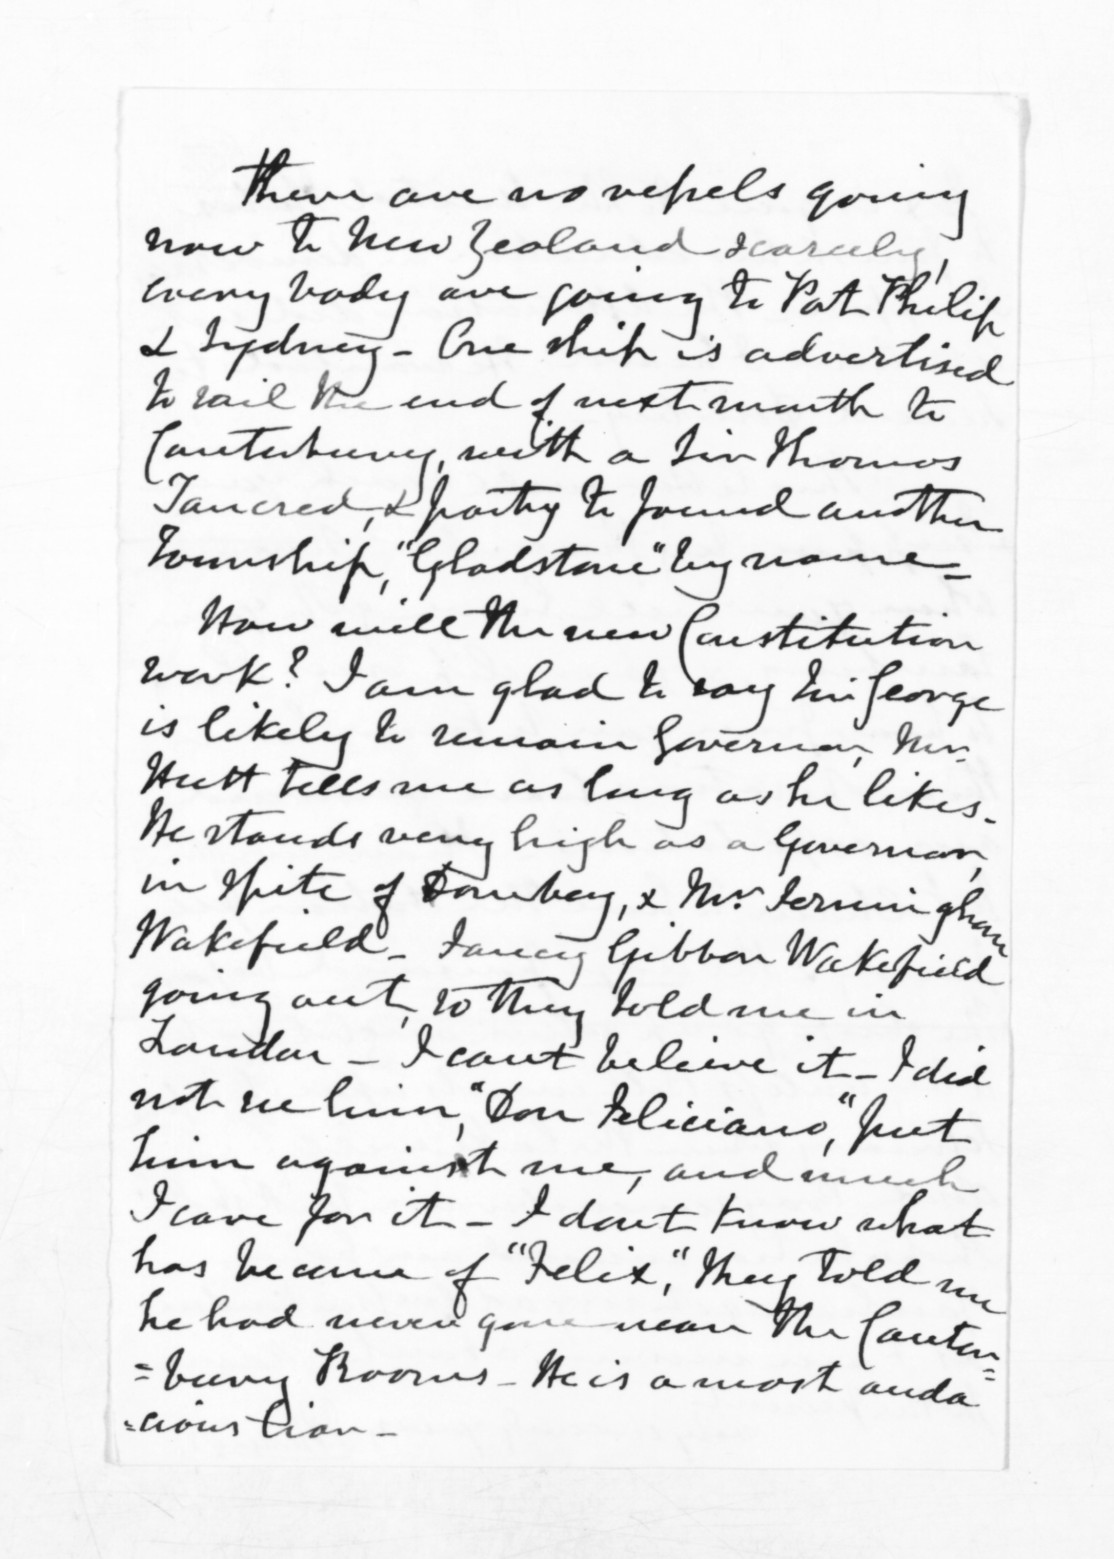 There are no vessels going
now to New Zealand scarcely,
every body are going to Port Philip
& Sydney - One ship is advertised
to sail the end of next month to
Canterbury, with a Sir Thomas
Tancred, & party to found another
Township, "Gladstone" by name -
How will the new Constitution
work? I am glad to say Sir George
is likely to remain Governor, Mr.
Hutt tells me as long as he likes.
He stands very high as a Governor,
in spite of Dombey, & Mr. Jerningham
Wakefield - Fancy Gibbon Wakefield
going out, so they told me in
London - I cant believe it - I did
not see him, "Don Feliciano," put
him against me, and much
I care for it - I dont know what
has become of "Felix," they told me
he had never gone near the Canter=
=bury Rooms - He is a most auda
=cious liar -